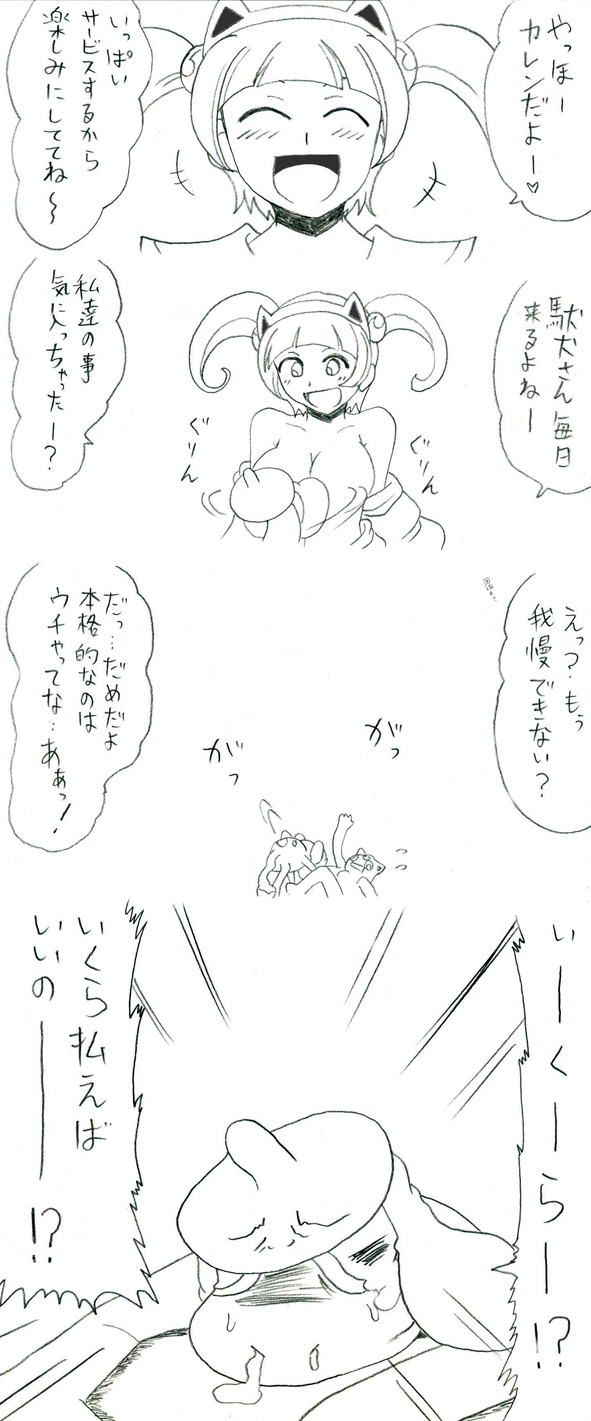 やっほー
カレンだよー♡
いっぱい
サービスするから
楽しみにしててね～
駄犬さん毎日
来るよねー
私達の事
気に入っちゃったー?
ぐりん
ぐりん
えっ?もう
我慢できない?
だっ…だめだよ
本格的なのは
ウチやってな…あぁっ!
がっ
がっ
いーくーらー!?
いくら払えば
いいのー!?